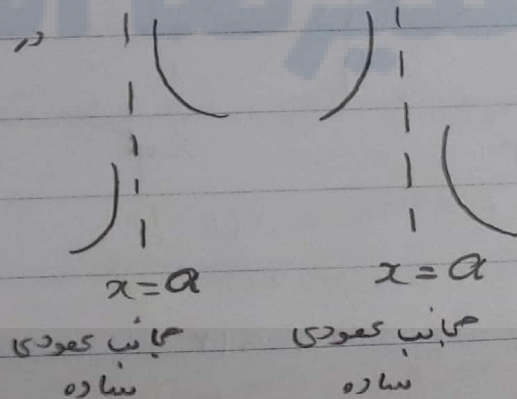 x=a
x=a
مجانب عمودی
ساده
مجانب عمودی
ساده